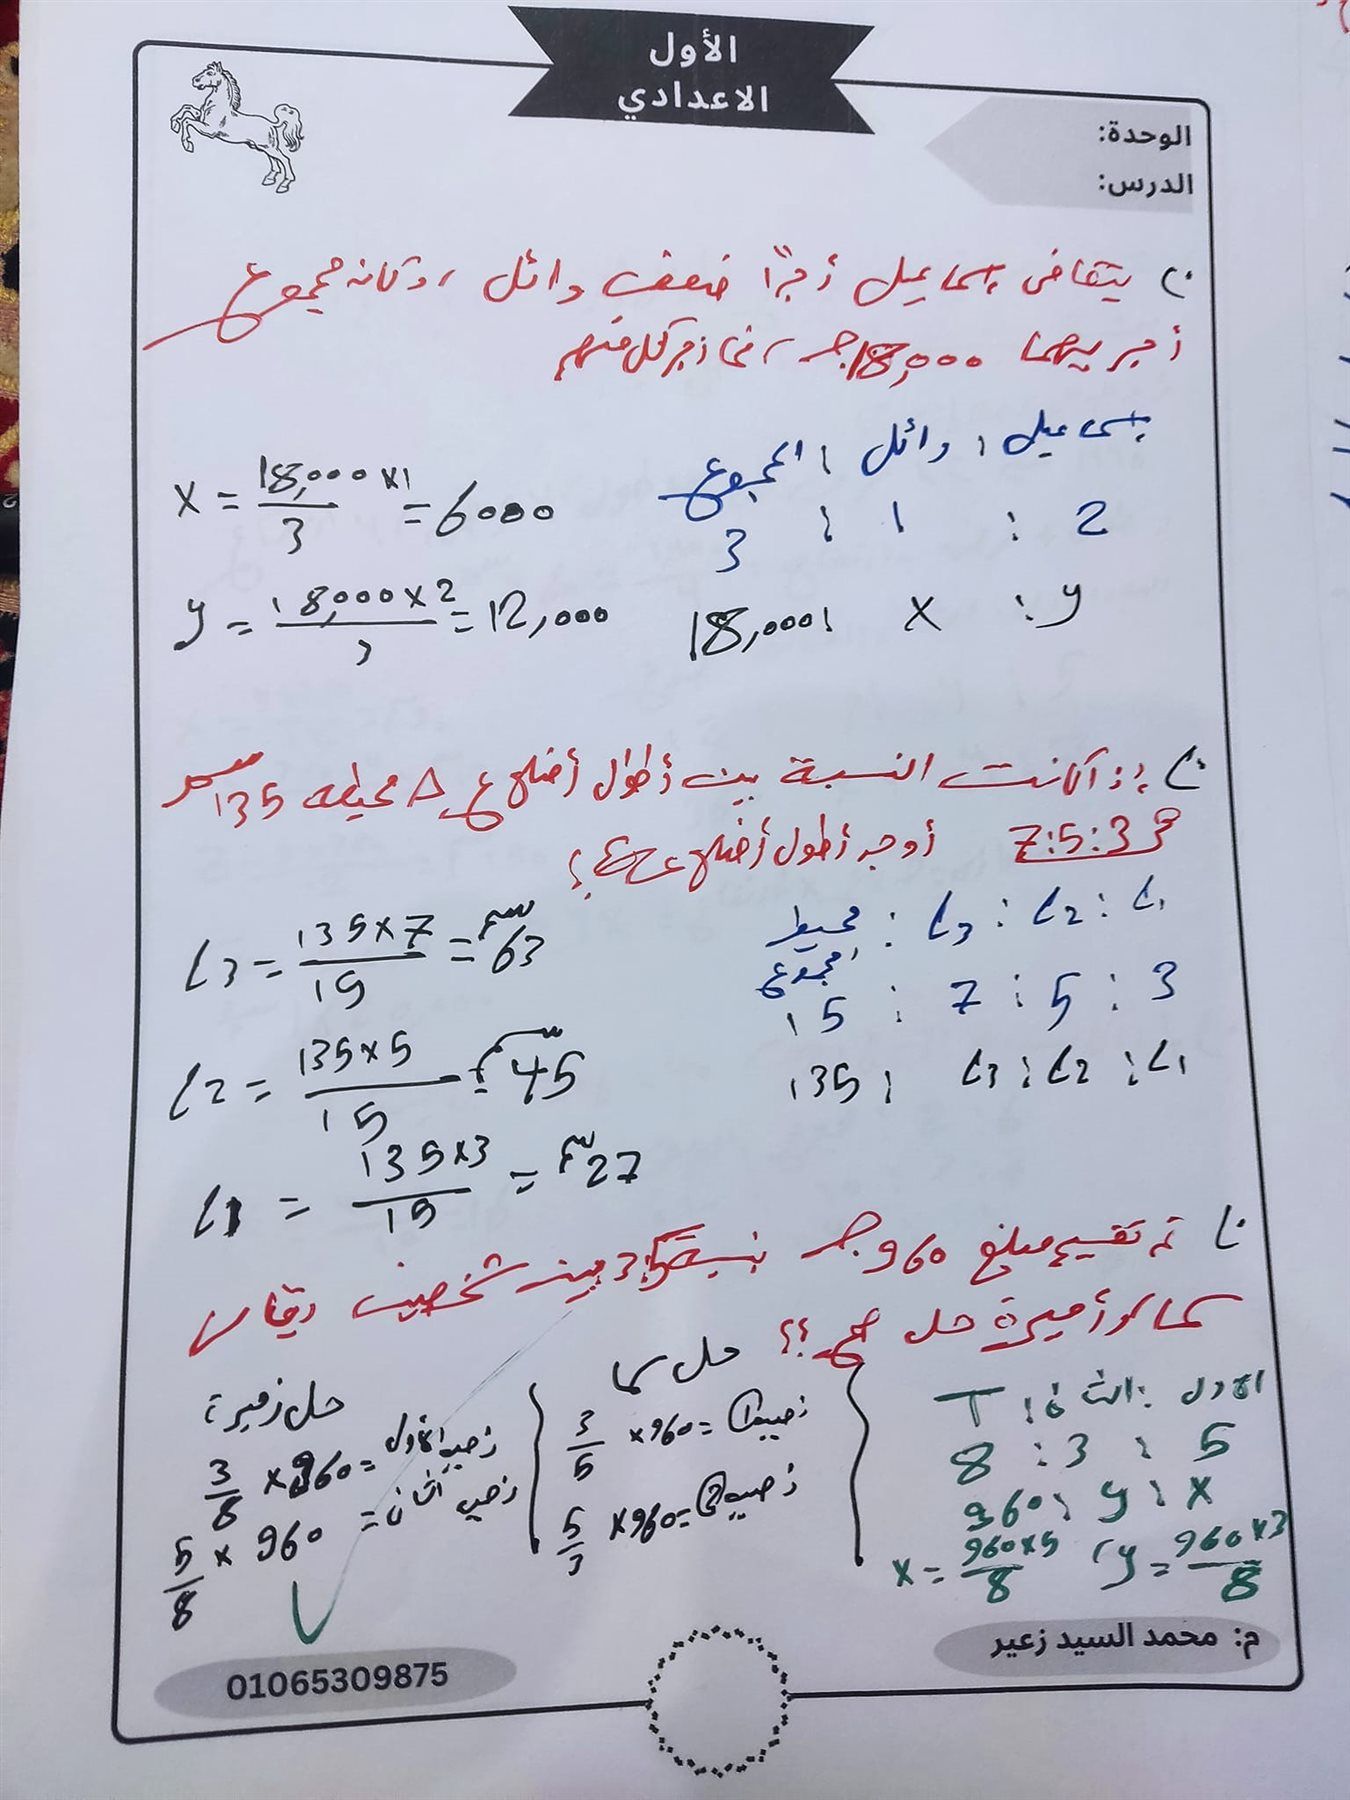 الأول
الاعدادي
الوحدة:
الدرس:
يتقاضى إسماعيل أجرًا ضعف وائل ، وكان مجموع
أجريهما 18,000 جـ ، فما أجر كل منهم
إسماعيل : وائل : المجموع
2 : 1 : 3
y : x : 18,000
x = 18,000 × 1 / 3 = 6000
y = 18,000 × 2 / 3 = 12,000
إذا كانت النسبة بين أطوال أضلاع △ محيطه 135 سم
7:5:3 أوجد أطول أضلاع
ل1 : ل2 : ل3 : محيط
مجموع
3 : 5 : 7 : 15
ل1 : ل2 : ل3 : 135
ل3 = 135×7 / 15 = 63 سم
ل2 = 135×5 / 15 = 45 سم
ل1 = 135×3 / 15 = 27 سم
تم تقسيم مبلغ 960 جـ بنسبة 5:3 بين شخصين
سما أو أميرة حل صح ؟؟
الأول : الثاني : T
5 : 3 : 8
x : y : 960
x = 960×5 / 8 ، y = 960×3 / 8
حل سما
نصيب 1 = 960 × 3/5
نصيب 2 = 960 × 5/3
نصيب الأول = 960 × 3/8
نصيب الثاني = 960 × 5/8
م: محمد السيد زعير
01065309875